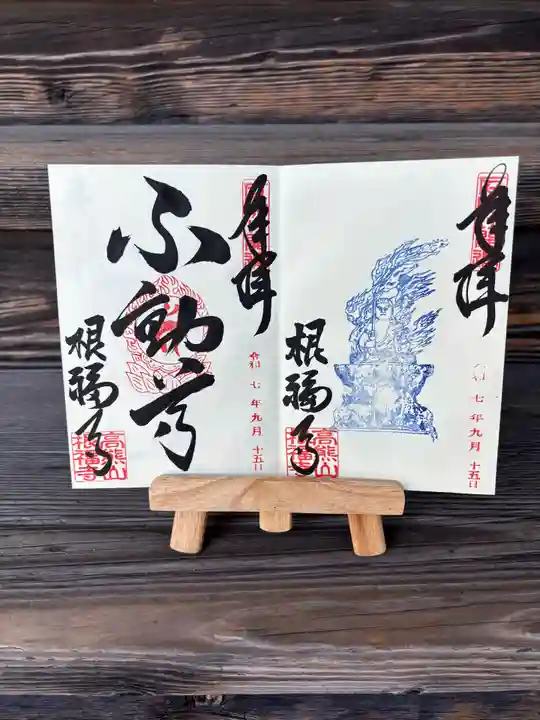 奉拝
令和 七 年 九 月 十五日
不動尊
根福寺
高熊山
根福寺
奉拝
令和 七 年 九 月 十五日
根福寺
高熊山
根福寺